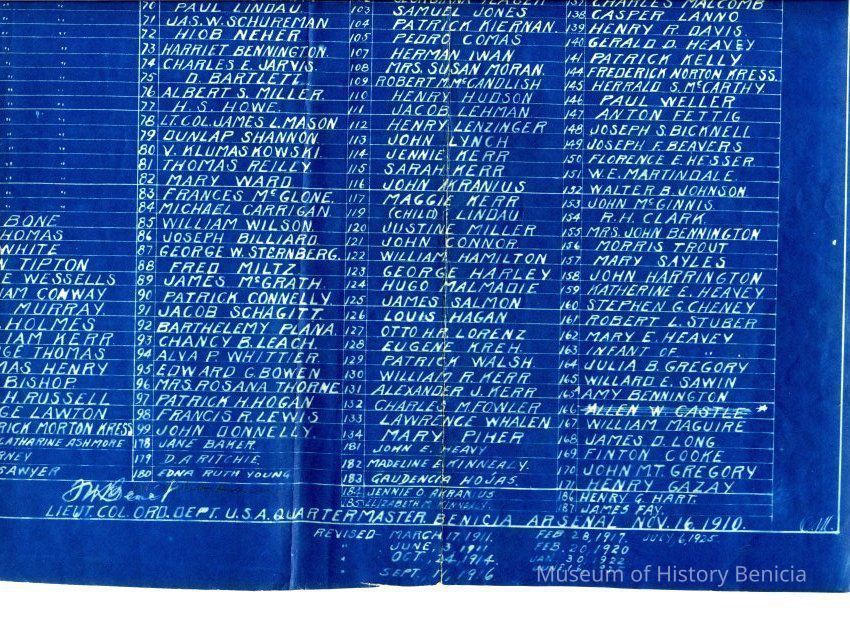 BONE
THOMAS
WHITE
N TIPTON
E WESSELLS
IAM CONWAY
MURRAY
HOLMES
IAM KERR
GE THOMAS
MAS HENRY
BISHOP
H. RUSSELL
GE LAWTON
RICK MORTON KRESS
CATHARINE ASHMORE
RNEY
SAWYER
70 PAUL LINDAU
71 JAS. W. SCHUREMAN
72 HIOB NEHER
73 HARRIET BENNINGTON.
74 CHARLES E. JARVIS.
75 D. BARTLETT.
76 ALBERT S. MILLER.
77 H. S. HOWE.
78 LT. COL. JAMES L. MASON
79 DUNLAP SHANNON.
80 V. KLUMASKOWSKI.
81 THOMAS REILLY
82 MARY WARD
83 FRANCES McGLONE.
84 MICHAEL CARRIGAN.
85 WILLIAM WILSON
86 JOSEPH BILLIARD.
87 GEORGE W. STERNBERG.
88 FRED MILTZ
89 JAMES McGRATH.
90 PATRICK CONNELLY
91 JACOB SCHAGITT
92 BARTHELEMY PLANA.
93 CHANCY B. LEACH.
94 ALVA P. WHITTIER.
95 EDWARD G. BOWEN
96 MRS. ROSANA THORNE
97 PATRICK H. HOGAN
98 FRANCIS R. LEWIS
99 JOHN DONNELLY.
178 JANE BAKER
179 D. A. RITCHIE.
180 EDNA RUTH YOUNG
103 SAMUEL JONES
104 PATRICK KIERNAN.
105 PEDRO COMAS
107 HERMAN IWAN
108 MRS. SUSAN MORAN.
109 ROBERT M. McCANDLISH
110 HENRY HUDSON
111 JACOB LEHMAN
112 HENRY LENZINGER
113 JOHN LYNCH
114 JENNIE KERR
115 SARAH KERR
116 JOHN AKRANIUS
117 MAGGIE KERR
119 (CHILD) LINDAU
120 JUSTINE MILLER
121 JOHN CONNOR
122 WILLIAM HAMILTON
123 GEORGE HARLEY
124 HUGO MALMADIE
125 JAMES SALMON
126 LOUIS HAGAN
127 OTTO H.R. LORENZ
128 EUGENE KREH.
129 PATRICK WALSH
130 WILLIAM R. KERR
131 ALEXANDER J. KERR
132 CHARLES M. FOWLER
133 LAWRENCE WHALEN
134 MARY PIHER
181 JOHN E. HEAVY
182 MADELINE E. KINNEALY.
183 GAUDENCIA HOJAS.
184 JENNIE O AKRANIUS
185 ELIZABETH M. KINNEALY
137 CHARLES MALCOMB
138 CASPER LANNO
139 HENRY R. DAVIS.
140 GERALD D. HEAVEY
141 PATRICK KELLY
144 FREDERICK NORTON KRESS.
145 HERRALD S. McCARTHY.
146 PAUL WELLER
147 ANTON FETTIG
148 JOSEPH S. BICKNELL
149 JOSEPH F. BEAVERS
150 FLORENCE E. HESSER
151 W. E. MARTINDALE.
152 WALTER B. JOHNSON
153 JOHN McGINNIS.
154 R. H. CLARK.
155 MRS. JOHN BENNINGTON
156 MORRIS TROUT
157 MARY SAYLES
158 JOHN HARRINGTON
159 KATHERINE E. HEAVEY
160 STEPHEN G. CHENEY
161 ROBERT L. STUBER
162 MARY E. HEAVEY
163 INFANT OF " "
164 JULIA B. GREGORY
165 WILLARD E. SAWIN
165A AMY BENNINGTON
166 ALLEN W CASTLE *
167 WILLIAM MAGUIRE
168 JAMES D. LONG
169 FINTON COOKE
170 JOHN M.T. GREGORY
171 HENRY GAZAY
186 HENRY G. HART.
187 JAMES FAY.
LIEUT. COL. ORD. DEPT. U.S.A. QUARTERMASTER BENICIA ARSENAL NOV. 16, 1910.
REVISED- MARCH 17 1911. FEB 28, 1917. JULY 6, 1925.
" JUNE, 3, 1911 FEB. 20, 1920
" OCT, 24, 1914. JAN. 30, 1922
" SEPT, 11, 1916
Museum of History Benicia